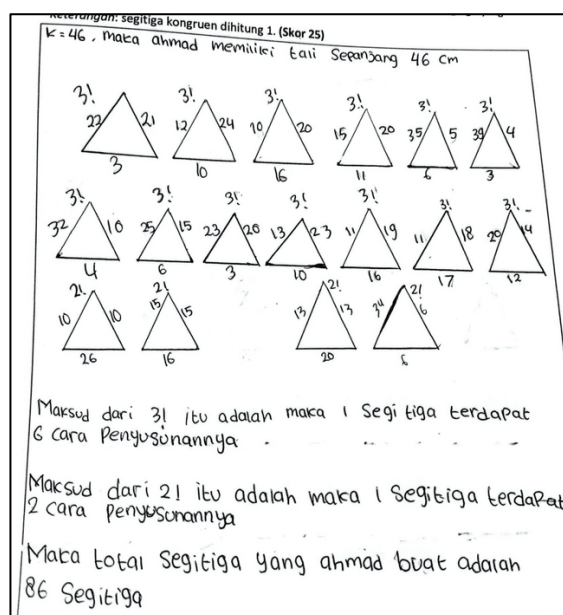 Keterangan: segitiga kongruen dihitung 1. (Skor 25)
K = 46, maka ahmad memiliki tali Sepanjang 46 cm
3! 3! 3! 3! 3! 3!
22 21 12 24 10 20 15 20 35 5 39 4
3 10 16 11 6 3
3! 3! 3! 3! 3! 3! 3!
32 10 25 15 23 20 13 23 11 19 11 18 20 14
4 6 3 10 16 17 12
2! 2! 2! 2!
10 10 15 15 13 13 34 6
26 16 20 6
Maksud dari 3! itu adalah maka 1 Segi tiga terdapat
6 cara Penyusunannya
Maksud dari 2! itu adalah maka 1 Segitiga terdapat
2 cara Penyusunannya
Maka total Segitiga yang ahmad buat adalah
86 Segitiga